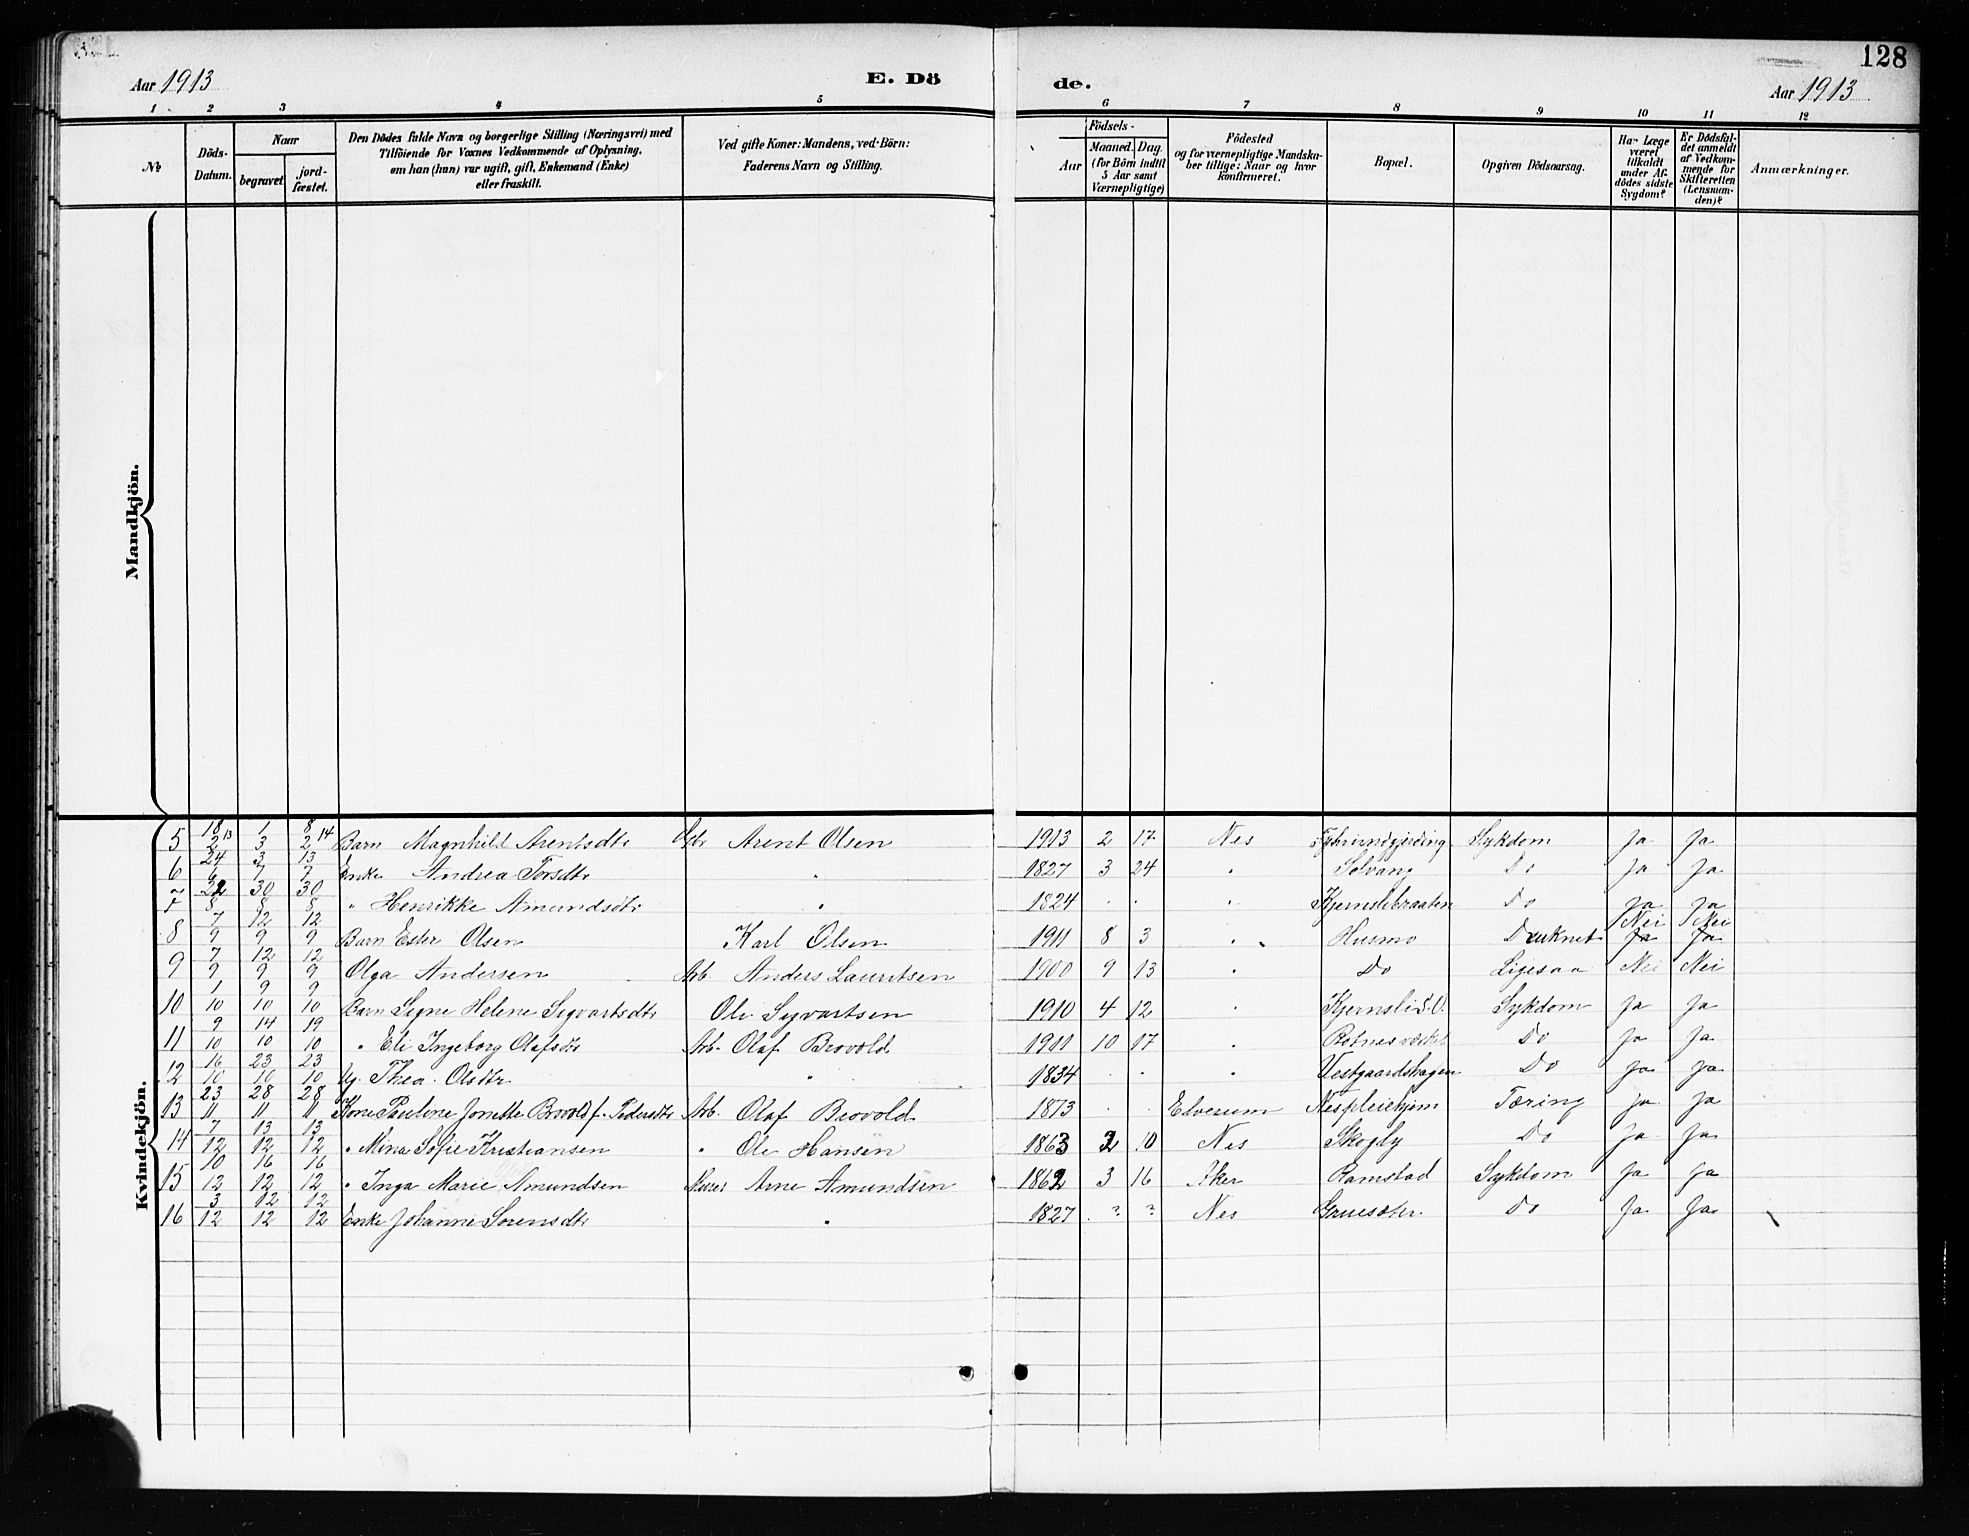 128
Aar 1913 E. Dö de. Aar 1913
1 2 3 4 5 6 7 8 9 10 11 12
No Döds-Datum. Naar begravet jord-fæstet. Den Dödes fulde Navn og borgerlige Stilling (Næringsvei) med Tilföiende for Voxnes Vedkommende af Oplysning, om han (hun) var ugift, gift, Enkemand (Enke) eller fraskilt. Ved gifte Koner: Mandens, ved Börn: Faderens Navn og Stilling. Födsels- Aar Maaned. Dag. (for Börn indtil 5 Aar samt Værnepligtige) Födested og for værnepligtige Mandskaber tillige: Naar og hvor konfirmeret. Bopæl. Opgiven Dödsaarsag. Har Læge været tilkaldt under Afdödes sidste Sygdom? Er Dödsfaldet anmeldt af Vedkommende for Skifteretten (Lensmanden)? Anmærkninger.
Mandkjön.
Kvindekjön.
5 18/2 13 1/3 8/2 14 Barn Magnhild Arentsdtr Arent Olsen 1913 2 17 Nes Sykdom Ja Ja
6 24/6 3/7 13/7 Enke Andrea Torsdtr " 1827 3 24 " Solvang Do Ja Ja
7 22/8 30/8 30/8 " Henrikke Amundsdtr " 1824 " " " Kjernslibraaten Do Ja Ja
8 7/9 12/9 12/9 Barn Ester Olsen Karl Olsen 1911 8 3 " " Husmo Druknet Nei Ja Nei Ja
9 7/9 12/9 12/9 Olga Andersen Arb. Anders Lauritsen 1900 9 13 " Do Ligesaa Nei Nei
10 1/10 9/10 9/10 Barn Signe Helene Sigvartsdtr Ole Sigvartsen 1910 4 12 " Kjernsli S.O. Sykdom Ja Ja
11 9/10 14/10 19/10 " Eli Ingeborg Olafsdtr Arb. Olaf Brovold 1911 10 17 " Do Ja Ja
12 16/10 23/10 23/10 Ug. Thea Olsdtr " 1834 " " " Vestgaardshagen Do Ja Ja
13 23/11 28/11 28/11 Kone Pauline Jonette Brovold f. Pedersdtr Arb. Olaf Brovold 1873 " " Elverum Nespleiehjem Tæring Ja Ja
14 7/12 13/12 13/12 " Mina Sofie Kristiansen " Ole Hansen 1863 2 10 Nes Skogly Do Ja Ja
15 10/12 16/12 16/12 " Inga Marie Amundsen Murer Arne Amundsen 1862 3 16 Aker Ramstad Sykdom Ja Ja
16 3/12 12/12 12/12 Enke Johanne Sorensdtr " 1827 ? ? Nes Do Ja Ja